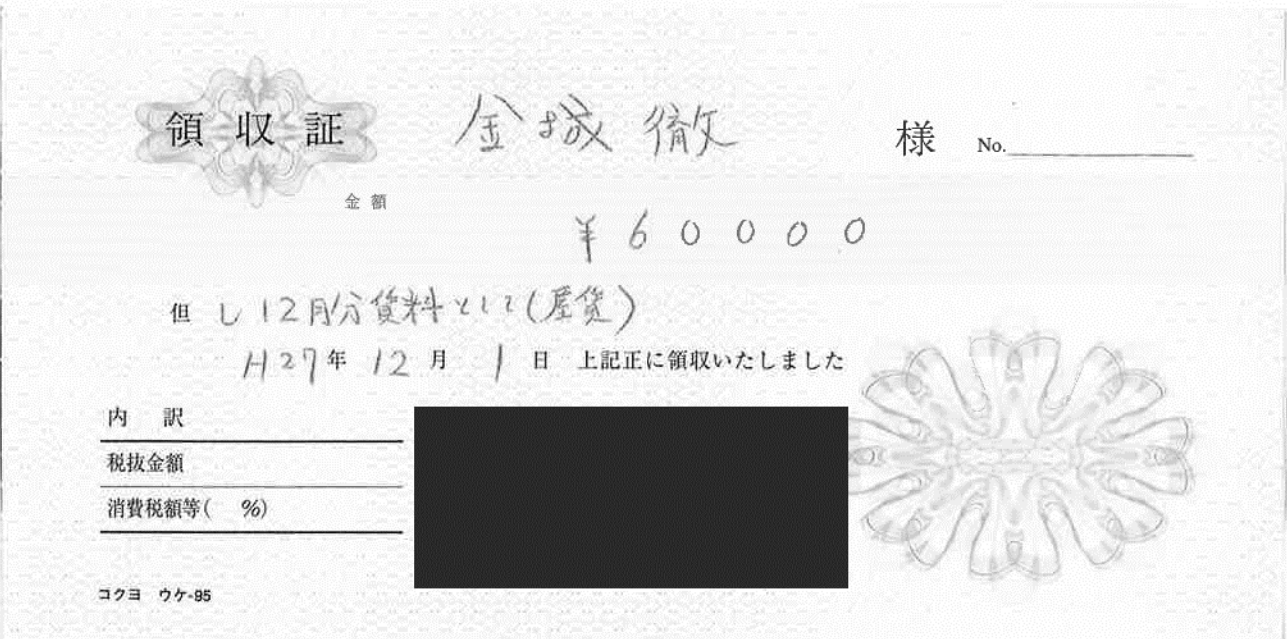 領収証 金城 徹 様 No.
金額
¥60000
但し 12月分賃料として(屋賃)
H27年 12月 1日 上記正に領収いたしました
内 訳
税抜金額
消費税額等( %)
コクヨ ウケ-95